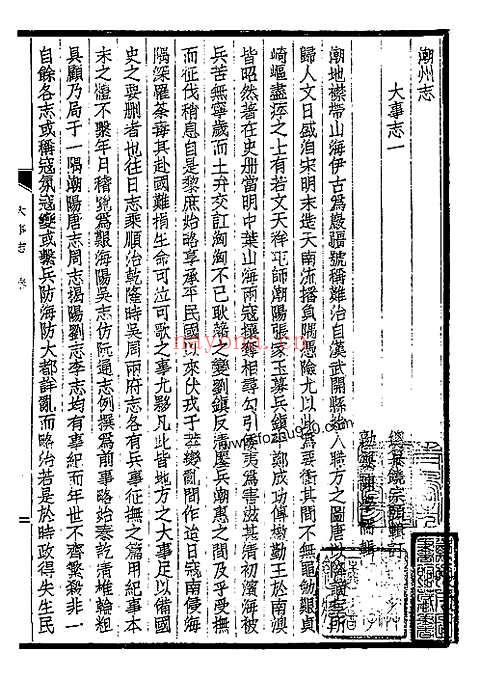 潮州志
大事志一
潮地襟帶山海伊古爲巖疆號稱難治自漢武開縣始入職方之圖唐以降謫宦所
歸人文日盛洎宋明末造天南流播負隅憑險尤以此爲要衝其間不無黽勉艱貞
崎嶇盡瘁之士有若文天祥屯師潮陽張家玉募兵鎮平鄭成功傳檄勤王於南澳
皆昭然著在史册當明中葉山海兩寇撰鋒相尋勾引倭夷爲害滋甚清初濱海被
兵苦無寧歲而土弁交訌洶洶不已耿藩之變劉鎮反清鏖兵潮惠之間及乎受撫
而征伐稍息自是黎庶始略享承平民國以來伏戎于莽變亂間作迨日寇南侵海
隅深罹荼毒其赴國難捐生命可泣可歌之事尤夥凡此皆地方之大事足以備國
史之要刪者也往日志乘順治乾隆時吳周兩府志各有兵事征撫之篇用紀事本
末之體不繫年月稽覽爲艱海陽吳志仿阮通志例撰爲前事略始秦訖清椎輪粗
具顧乃局于一隅潮陽唐志周志揭陽劉志李志均有事紀而年世不齊繁殺非一
自餘各志或稱寇氛寇變或繫兵防海防大都詳亂而略治若是於時政得失生民
大事志
饒宗頤輯
nayona.cn
www.fozhu90.com